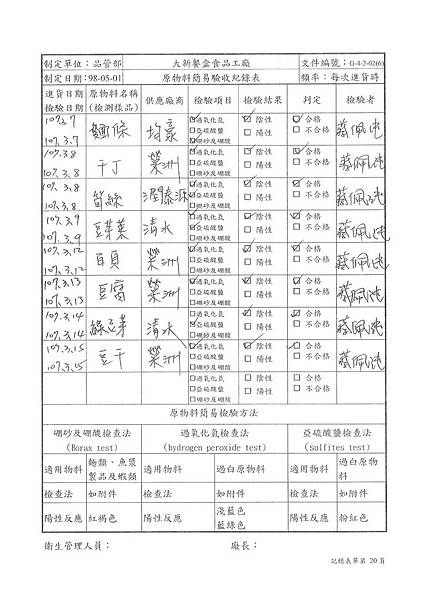 制定單位：品管部 大新餐盒食品工廠 文件編號：G-4-2-02(6)
制定日期：98-05-01 原物料簡易驗收紀錄表 頻率：每次進貨時
進貨日期 原物料名稱 供應廠商 檢驗項目 檢驗結果 判定 檢驗者
檢驗日期 (檢測樣品)
107.3.7 麵條 均豪 ☑過氧化氫 ☑陰性 ☑合格
107.3.7 □亞硫酸鹽 □陽性 □不合格
□硼砂及硼酸
107.3.8 干丁 榮洲 過氧化氫 ☑陰性 ☑合格
107.3.8 □亞硫酸鹽 □陽性 □不合格
□硼砂及硼酸
107.3.8 筍絲 潤泰源 過氧化氫 ☑陰性 ☑合格
107.3.8 亞硫酸鹽 □陽性 □不合格
□硼砂及硼酸
107.3.9 豆芽菜 清水 過氧化氫 ☑陰性 ☑合格
107.3.9 亞硫酸鹽 □陽性 □不合格
□硼砂及硼酸
107.3.12 百頁 榮洲 ☑過氧化氫 ☑陰性 ☑合格
107.3.12 □亞硫酸鹽 □陽性 □不合格
□硼砂及硼酸
107.3.13 豆腐 榮洲 ☑過氧化氫 ☑陰性 ☑合格
107.3.13 □亞硫酸鹽 □陽性 □不合格
□硼砂及硼酸
107.3.14 綠豆芽 清水 過氧化氫 ☑陰性 ☑合格
107.3.14 亞硫酸鹽 □陽性 □不合格
□硼砂及硼酸
107.3.15 豆干 榮洲 ☑過氧化氫 ☑陰性 ☑合格
107.3.15 □亞硫酸鹽 □陽性 □不合格
□硼砂及硼酸
□過氧化氫 □陰性 □合格
□亞硫酸鹽 □陽性 □不合格
□硼砂及硼酸
原物料簡易檢驗方法
硼砂及硼酸檢查法 過氧化氫檢查法 亞硫酸鹽檢查法
(Borax test) (hydrogen peroxide test) (Sulfites test)
適用物料 麵類、魚漿製品及蝦類 適用物料 過白原物料 適用物料 過白原物料
檢查法 如附件 檢查法 如附件 檢查法 如附件
陽性反應 紅褐色 陽性反應 淺藍色 藍綠色 陽性反應 粉紅色
衛生管理人員： 廠長：
記錄表單第 20 頁